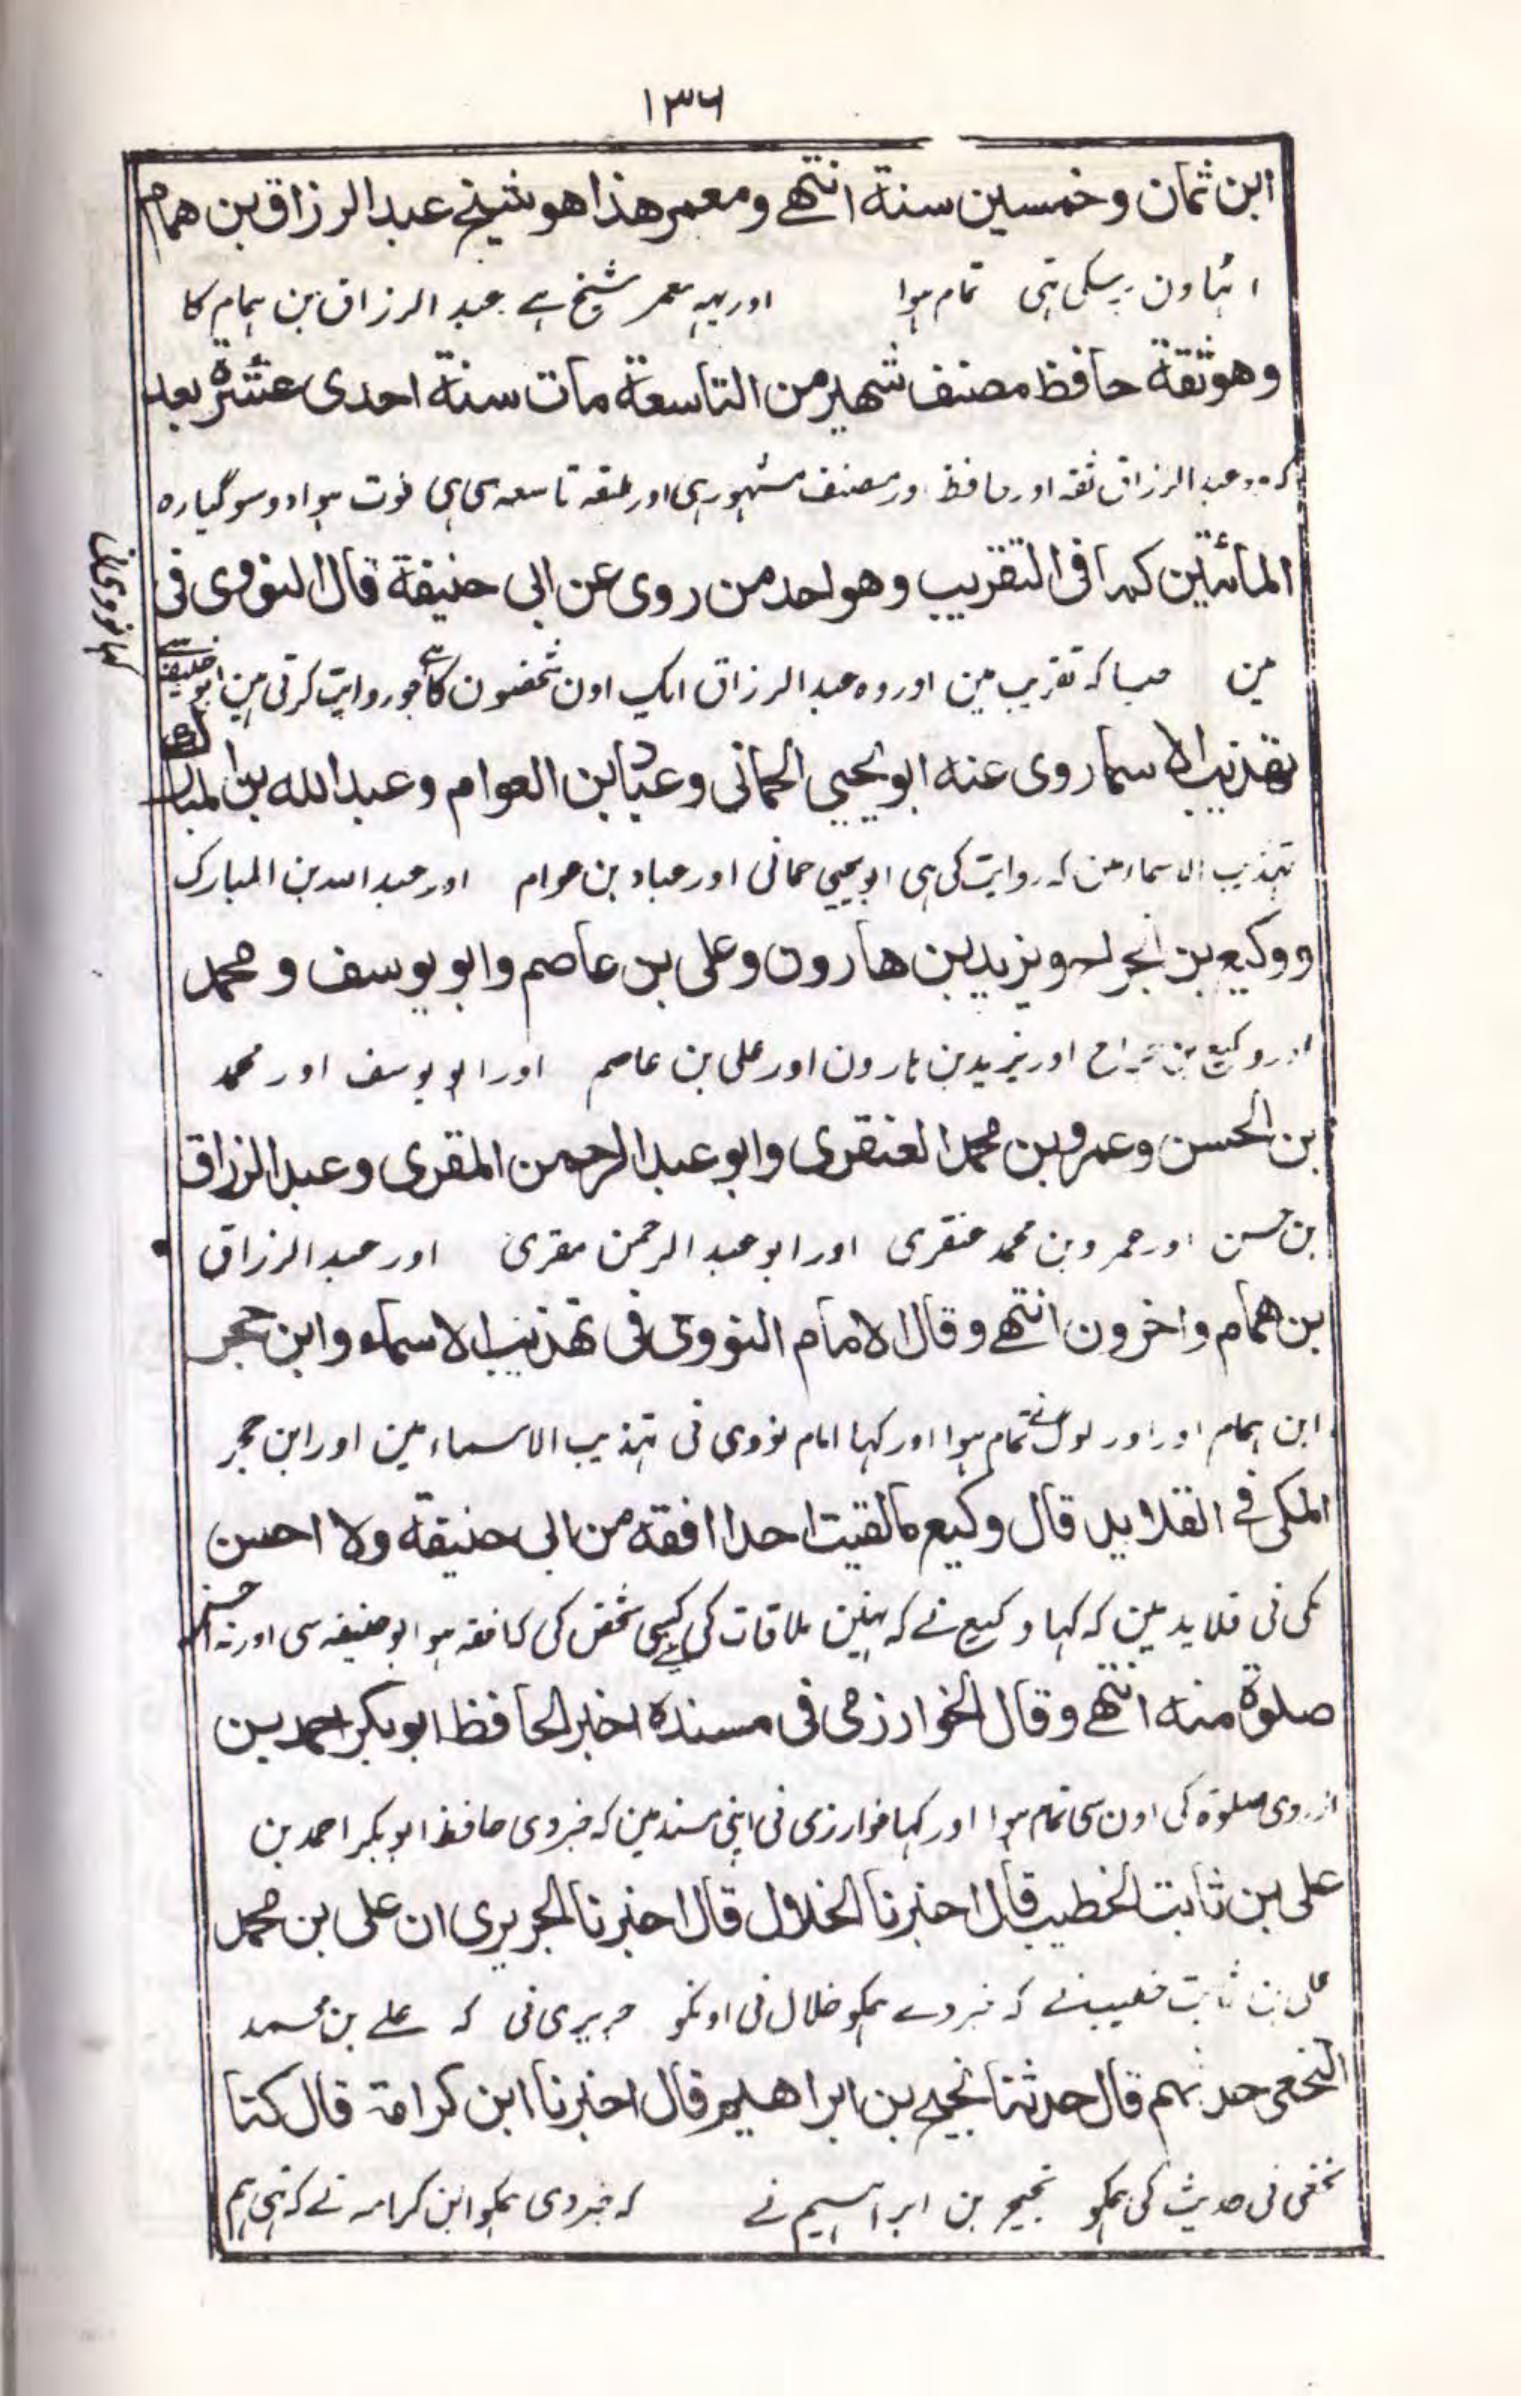 ۱۳۶
ابن ثمان وخمسين سنة انتهے ومعمر هذا هو شيخ عبد الرزاق بن همام
اٹہاون برسکی تہی تمام ہوا اور یہہ معمر شیخ ہے عبد الرزاق بن ہمام کا
وهو ثقة حافظ مصنف شهير من التاسعة مات سنة احدى عشرة بعد
کہ وہ عبد الرزاق ثقہ اور حافظ اور مصنف مشہور ہی اور طبقہ تاسعہ سی ہی فوت ہوا دو سو گیارہ
المائتين كما فى التقريب وهو احد من روى عن ابى حنيفة قال النووى فى
مین جیسا کہ تقریب مین اور وہ عبد الرزاق ایک اون شخصون کا ہے جو روایت کرتی ہین ابو حنیفہ سے
کہا نووی نی
تهذيب الاسما روى عنه ابو يحيى الحمانى وعباد ابن العوام وعبد الله بن المبارك
تہذیب الاسماء مین کہ روایت کی ہی ابو یحیی حمانی اور عباد بن عوام اور عبد اللہ بن المبارک
ووكيع بن الجراح ويزيد بن هارون وعلى بن عاصم وابو يوسف ومحمد
اور وکیع بن جراح اور یزید بن ہارون اور علی بن عاصم اور ابو یوسف اور محمد
بن الحسن وعمرو بن محمد العنقرى وابو عبد الرحمن المقرى وعبد الرزاق
بن حسن اور عمرو بن محمد عنقری اور ابو عبد الرحمن مقری اور عبد الرزاق
بن همام واخرون انتهے وقال الامام النووى فى تهذيب الاسماء وابن حجر
ابن ہمام اور اور لوگ نے تمام ہوا اور کہا امام نووی نی تہذیب الاسماء مین اور ابن حجر
المكى فے القلايد قال وكيع ما لقيت احدا افقه من ابى حنيفة ولا احسن
مکی نی قلاید مین کہ کہا وکیع نے کہ نہین ملاقات کی کسی شخص کی کہ افقہ ہو ابو حنیفہ سی اور نہ احسن
صلوة منه انتهے وقال الخوارزمى فى مسنده اخبر الحافظ ابو بكر احمد بن
از روی صلوۃ کی اون سی تمام ہوا اور کہا خوارزمی نی اپنی مسند مین کہ خبر دی حافظ ابو بکر احمد بن
على بن ثابت الخطيب قال اخبرنا الخلال قال اخبرنا الجريرى ان على بن محمد
علی بن ثابت خطیب نے کہ خبر دے ہمکو خلال نی اونکو حریری نی کہ علے بن محمد
النخعى حدثهم قال حدثنا نجيح بن ابراهيم قال اخبرنا ابن كرامة قال كنا
نخعی نی حدیث کی ہمکو نجیح بن ابراہیم نے کہ خبر دی ہمکو ابن کرامہ نے کہ تہی ہم